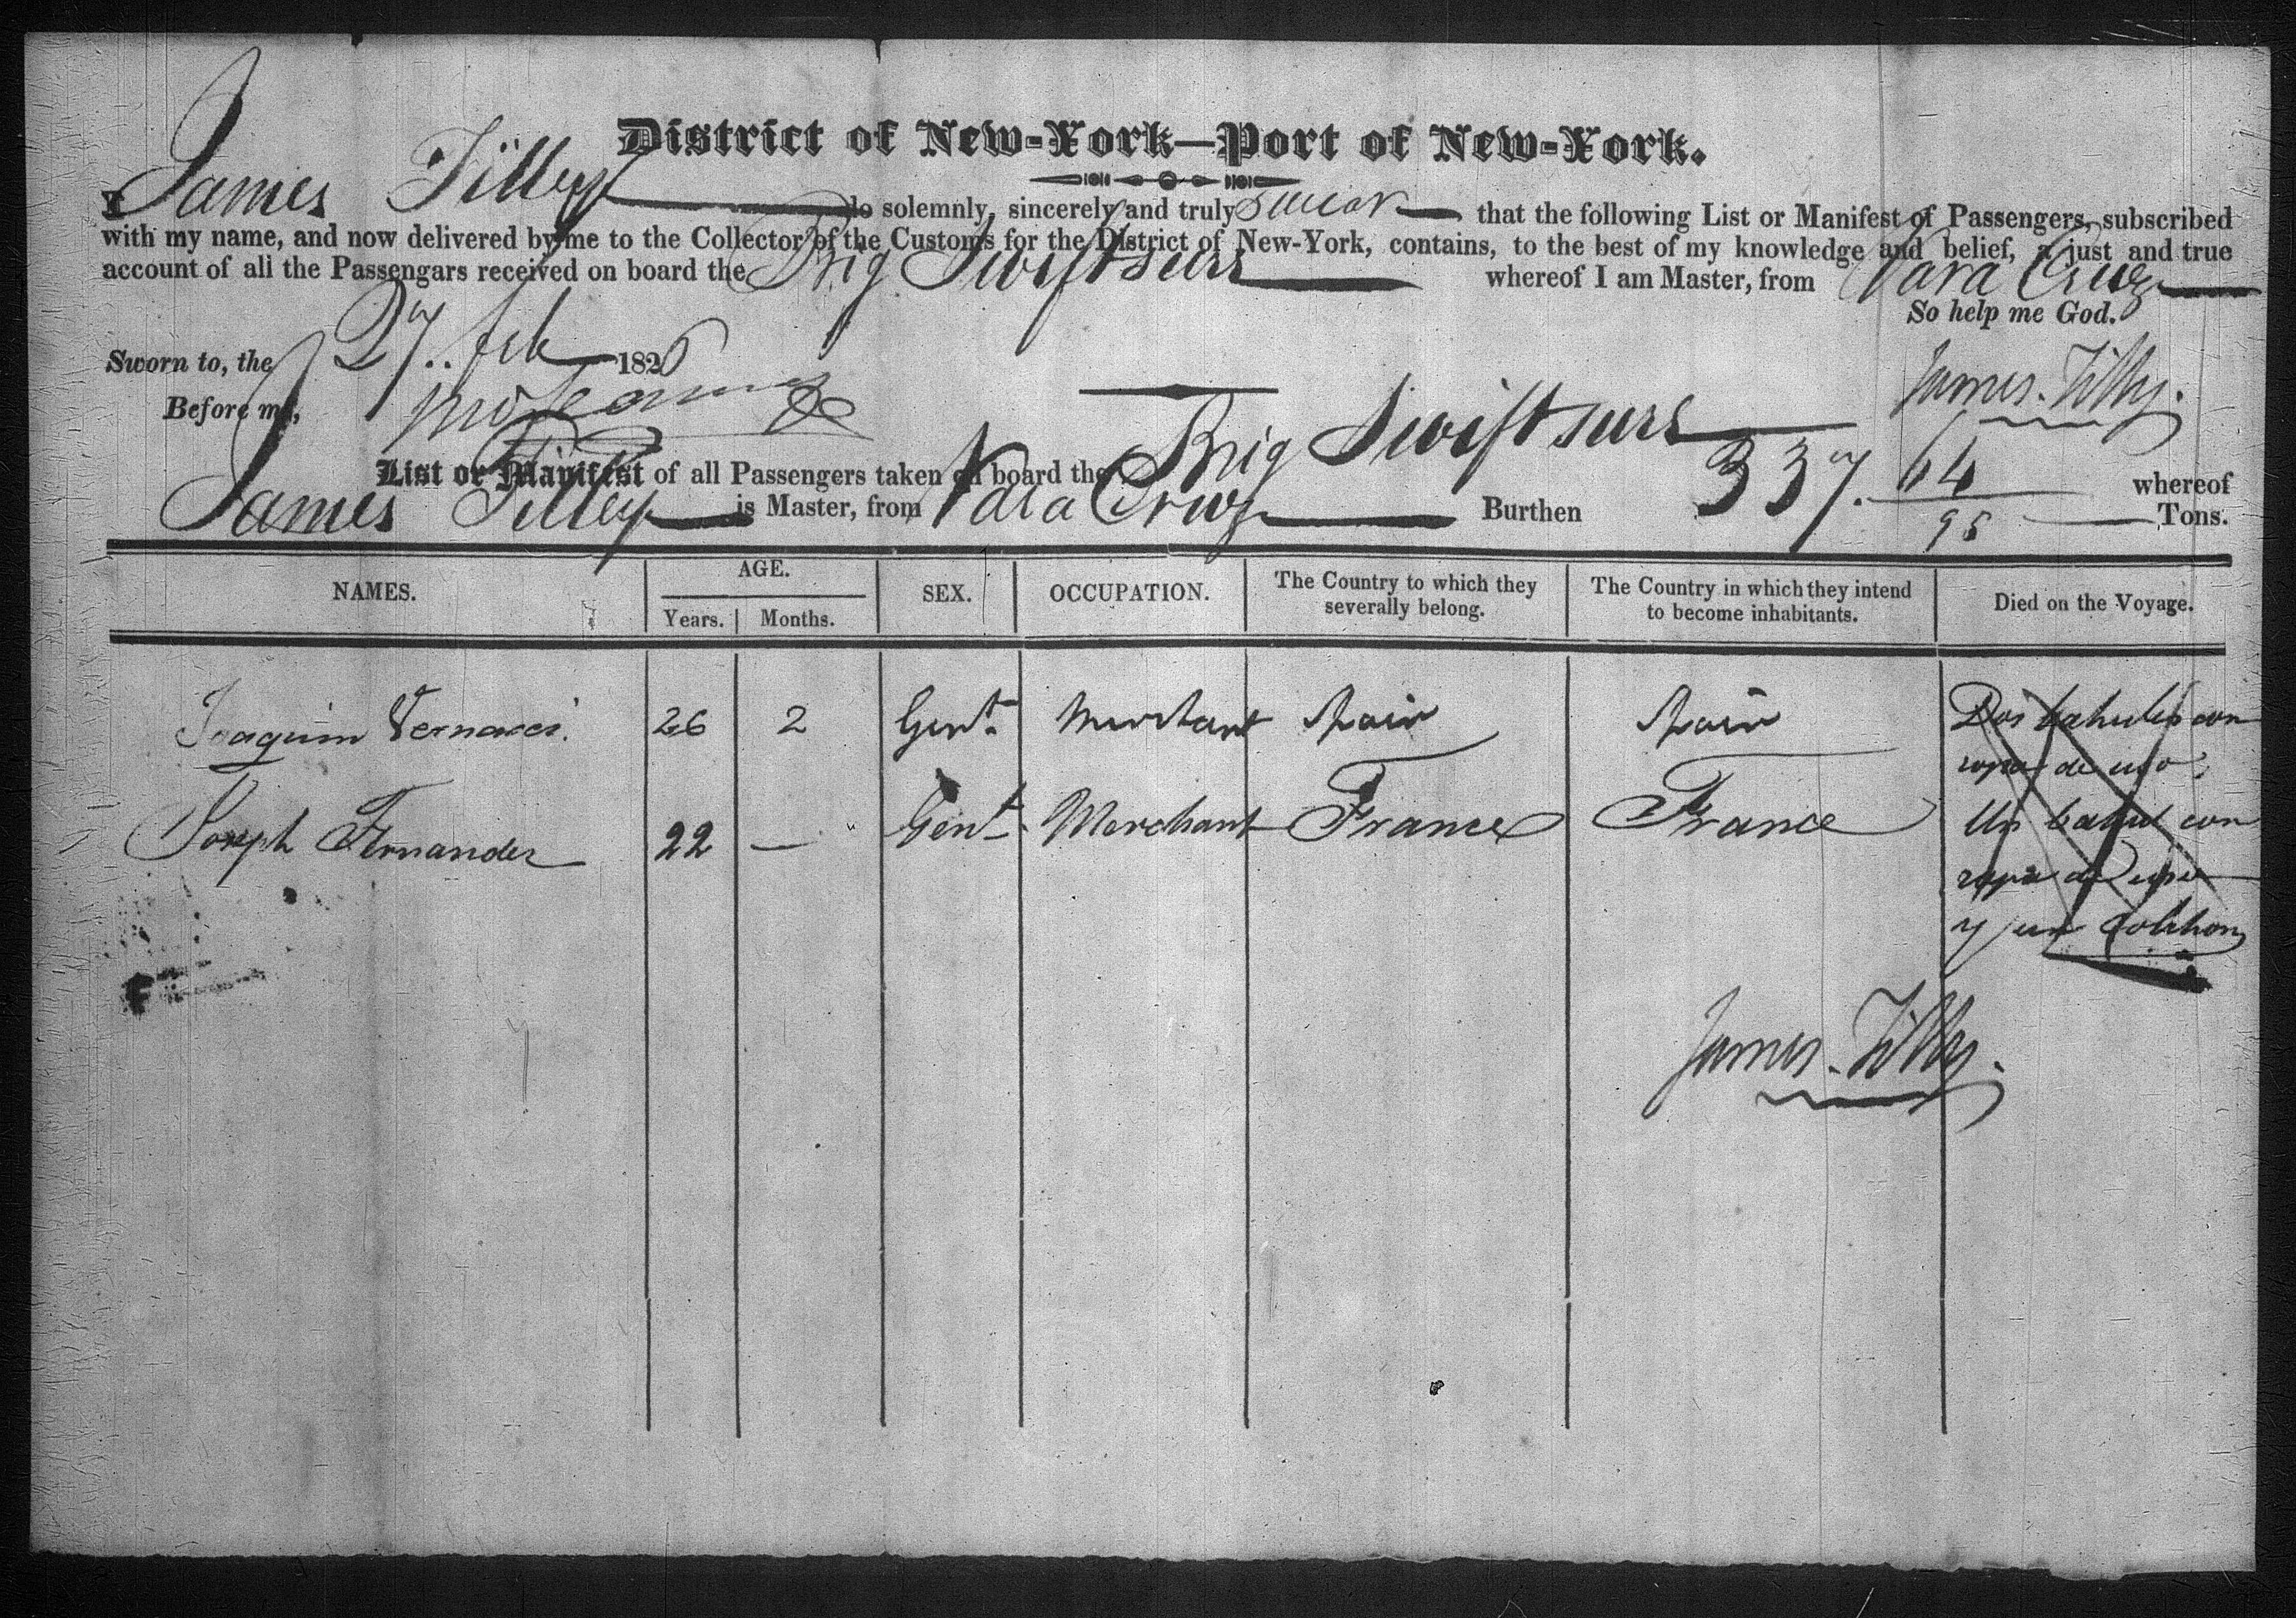 District of New-York—Port of New-York.
I James Tilley do solemnly, sincerely and truly swear that the following List or Manifest of Passengers, subscribed
with my name, and now delivered by me to the Collector of the Customs for the District of New-York, contains, to the best of my knowledge and belief, a just and true
account of all the Passengars received on board the Brig Swiftsure whereof I am Master, from Vara Cruz
So help me God.
Sworn to, the 27. Feb 1826
James. Tilly.
Before me,
List or Manifest of all Passengers taken on board the Brig Swiftsure whereof
James Tilley is Master, from Vara Cruz Burthen 337. 64/95 Tons.
NAMES. AGE. Years. Months. SEX. OCCUPATION. The Country to which they severally belong. The Country in which they intend to become inhabitants. Died on the Voyage.
Joaquim Vernacci. 26 2 Gent. Merchant Spain Spain Dos bahules con
ropa de uso,
Joseph Fernandez 22 — Gent. Merchant France France Un bahul con
ropa de uso
y un colchon
James. Tilly.